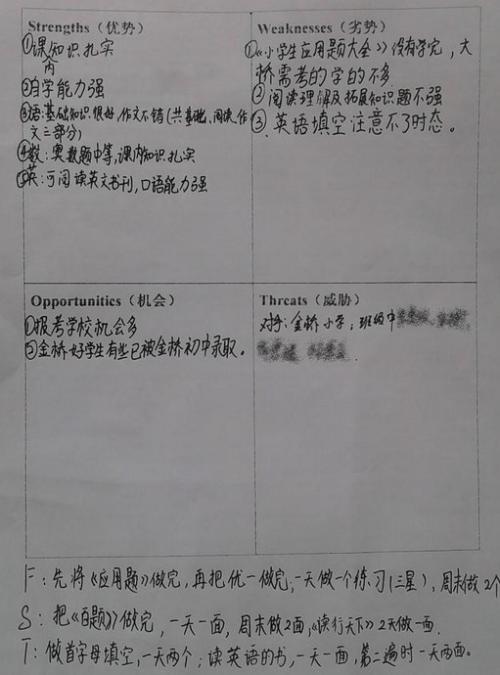 Strengths（优势）
①课内知识扎实
②自学能力强
③语：基础知识很好，作文不错(共基础、阅读、作
文三部分)
④数：奥数题中等，课内知识扎实
⑤英：可阅读英文书刊，口语能力强
Weaknesses（劣势）
①《小学生应用题大全》没有学完，大
桥需考的学的不多
②阅读理解及拓展知识题不强
③英语填空注意不了时态。
Opportunities（机会）
①报考学校机会多
②金桥好学生有些已被金桥初中录取。
Threats（威胁）
对手：金桥小学；班级中
F：先将《应用题》做完，再把优一做完，一天做一个练习(三星)，周末做2个
S：把《百题》做完，一天一面，周末做2面，《读行天下》2天做一面.
T：做首字母填空，一天两个；读英语的书，一天一面，第二遍时一天两面。